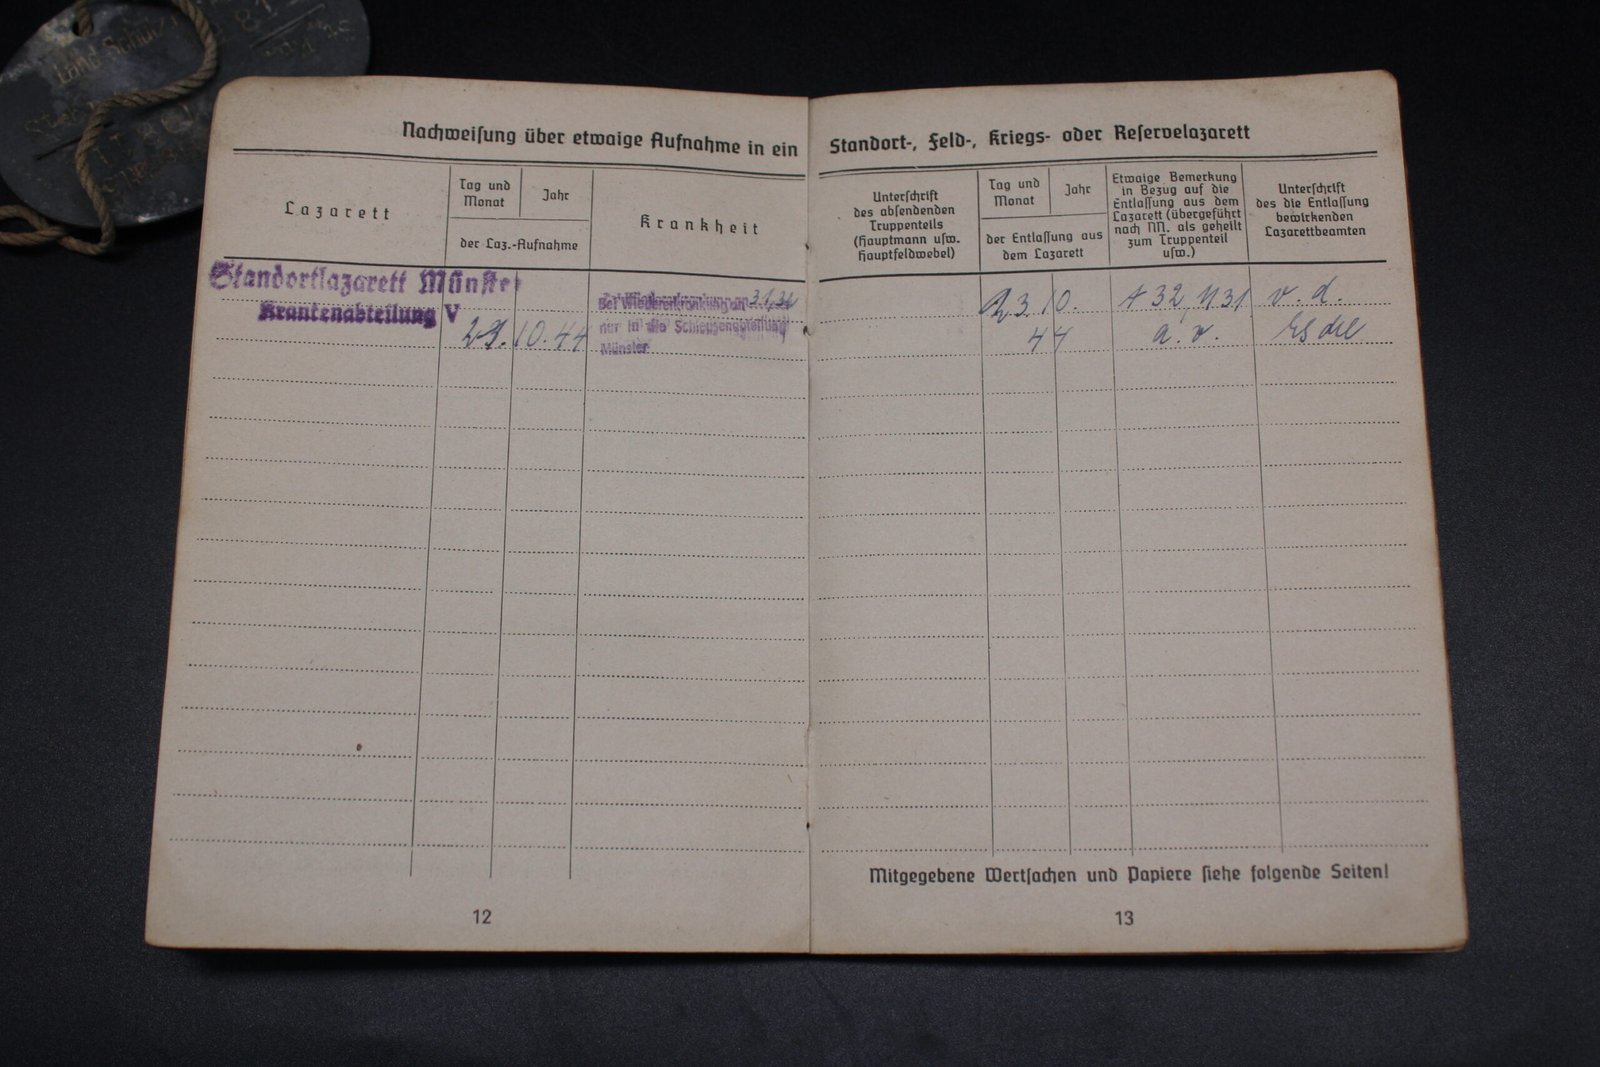 Nachweisung über etwaige Aufnahme in ein Standort-, Feld-, Kriegs- oder Reservelazarett
Lazarett
Tag und
Monat
Jahr
der Laz.-Aufnahme
Krankheit
Unterschrift
des absendenden
Truppenteils
(Hauptmann usw.
Hauptfeldwebel)
Tag und
Monat
Jahr
der Entlassung aus
dem Lazarett
Etwaige Bemerkung
in Bezug auf die
Entlassung aus dem
Lazarett (übergeführt
nach NN. als geheilt
zum Truppenteil
usw.)
Unterschrift
des die Entlassung
bewirkenden
Lazarettbeamten
Standortlazarett Münster
Krankenabteilung V
10. 44
Bei Wiedererkrankung an 31,32
nur in die
Münster
23 10.
44
A 32, U31
a. v.
v. d.
Mitgegebene Wertsachen und Papiere siehe folgende Seiten!
12
13